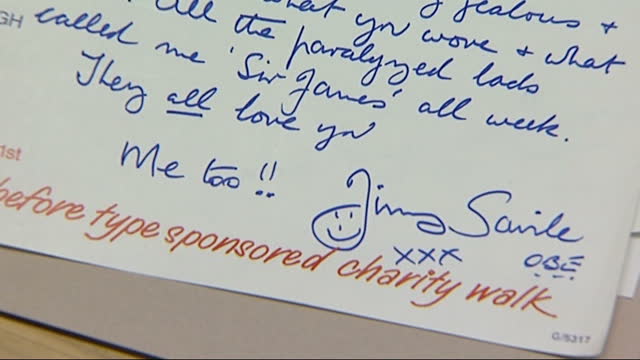 jealous +
what you wore + what
GH
all the paralyzed lads
called me 'Sir James' all week.
They all love you
1st
Me too!!
Jimmy Savile
xxx OBE
before type sponsored charity walk
G/5317